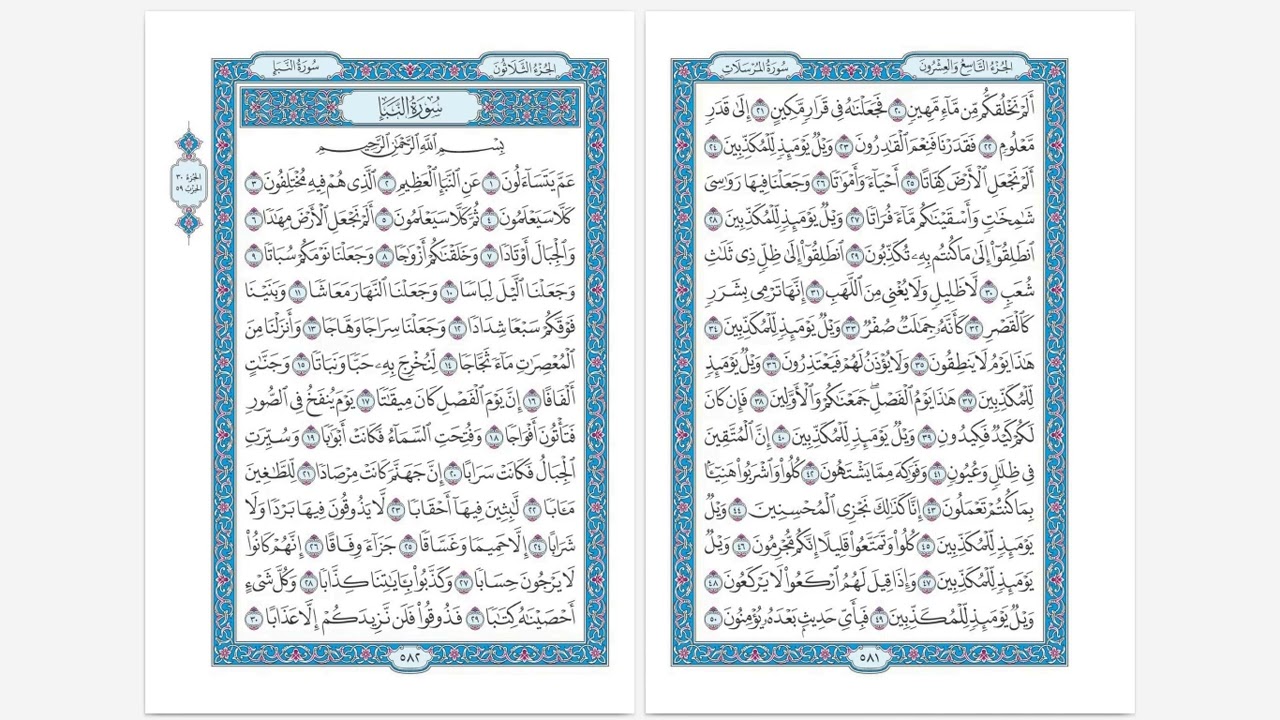 الجزء التاسع والعشرون
سورة المرسلات
أَلَمْ نَخْلُقكُّم مِّن مَّآءٍ مَّهِينٍ ٢٠ فَجَعَلْنَٰهُ فِى قَرَارٍ مَّكِينٍ ٢١ إِلَىٰ قَدَرٍ
مَّعْلُومٍ ٢٢ فَقَدَرْنَا فَنِعْمَ ٱلْقَٰدِرُونَ ٢٣ وَيْلٌ يَوْمَئِذٍ لِّلْمُكَذِّبِينَ ٢٤
أَلَمْ نَجْعَلِ ٱلْأَرْضَ كِفَاتًا ٢٥ أَحْيَآءً وَأَمْوَٰتًا ٢٦ وَجَعَلْنَا فِيهَا رَوَٰسِىَ
شَٰمِخَٰتٍ وَأَسْقَيْنَٰكُم مَّآءً فُرَاتًا ٢٧ وَيْلٌ يَوْمَئِذٍ لِّلْمُكَذِّبِينَ ٢٨
ٱنطَلِقُوٓا۟ إِلَىٰ مَا كُنتُم بِهِۦ تُكَذِّبُونَ ٢٩ ٱنطَلِقُوٓا۟ إِلَىٰ ظِلٍّ ذِى ثَلَٰثِ
شُعَبٍ ٣٠ لَّا ظَلِيلٍ وَلَا يُغْنِى مِنَ ٱللَّهَبِ ٣١ إِنَّهَا تَرْمِى بِشَرَرٍ
كَٱلْقَصْرِ ٣٢ كَأَنَّهُۥ جِمَٰلَتٌ صُفْرٌ ٣٣ وَيْلٌ يَوْمَئِذٍ لِّلْمُكَذِّبِينَ ٣٤
هَٰذَا يَوْمُ لَا يَنطِقُونَ ٣٥ وَلَا يُؤْذَنُ لَهُمْ فَيَعْتَذِرُونَ ٣٦ وَيْلٌ يَوْمَئِذٍ
لِّلْمُكَذِّبِينَ ٣٧ هَٰذَا يَوْمُ ٱلْفَصْلِ ۖ جَمَعْنَٰكُمْ وَٱلْأَوَّلِينَ ٣٨ فَإِن كَانَ
لَكُمْ كَيْدٌ فَكِيدُونِ ٣٩ وَيْلٌ يَوْمَئِذٍ لِّلْمُكَذِّبِينَ ٤٠ إِنَّ ٱلْمُتَّقِينَ
فِى ظِلَٰلٍ وَعُيُونٍ ٤١ وَفَوَٰكِهَ مِمَّا يَشْتَهُونَ ٤٢ كُلُوا۟ وَٱشْرَبُوا۟ هَنِيٓـًٔا
بِمَا كُنتُمْ تَعْمَلُونَ ٤٣ إِنَّا كَذَٰلِكَ نَجْزِى ٱلْمُحْسِنِينَ ٤٤ وَيْلٌ
يَوْمَئِذٍ لِّلْمُكَذِّبِينَ ٤٥ كُلُوا۟ وَتَمَتَّعُوا۟ قَلِيلًا إِنَّكُم مُّجْرِمُونَ ٤٦ وَيْلٌ
يَوْمَئِذٍ لِّلْمُكَذِّبِينَ ٤٧ وَإِذَا قِيلَ لَهُمُ ٱرْكَعُوا۟ لَا يَرْكَعُونَ ٤٨
وَيْلٌ يَوْمَئِذٍ لِّلْمُكَذِّبِينَ ٤٩ فَبِأَىِّ حَدِيثٍۭ بَعْدَهُۥ يُؤْمِنُونَ ٥٠
٥٨١
الجزء الثلاثون
سورة النبإ
سورة النبإ
بِسْمِ ٱللَّهِ ٱلرَّحْمَٰنِ ٱلرَّحِيمِ
عَمَّ يَتَسَآءَلُونَ ١ عَنِ ٱلنَّبَإِ ٱلْعَظِيمِ ٢ ٱلَّذِى هُمْ فِيهِ مُخْتَلِفُونَ ٣
كَلَّا سَيَعْلَمُونَ ٤ ثُمَّ كَلَّا سَيَعْلَمُونَ ٥ أَلَمْ نَجْعَلِ ٱلْأَرْضَ مِهَٰدًا ٦
وَٱلْجِبَالَ أَوْتَادًا ٧ وَخَلَقْنَٰكُمْ أَزْوَٰجًا ٨ وَجَعَلْنَا نَوْمَكُمْ سُبَاتًا ٩
وَجَعَلْنَا ٱلَّيْلَ لِبَاسًا ١٠ وَجَعَلْنَا ٱلنَّهَارَ مَعَاشًا ١١ وَبَنَيْنَا
فَوْقَكُمْ سَبْعًا شِدَادًا ١٢ وَجَعَلْنَا سِرَاجًا وَهَّاجًا ١٣ وَأَنزَلْنَا مِنَ
ٱلْمُعْصِرَٰتِ مَآءً ثَجَّاجًا ١٤ لِّنُخْرِجَ بِهِۦ حَبًّا وَنَبَاتًا ١٥ وَجَنَّٰتٍ
أَلْفَافًا ١٦ إِنَّ يَوْمَ ٱلْفَصْلِ كَانَ مِيقَٰتًا ١٧ يَوْمَ يُنفَخُ فِى ٱلصُّورِ
فَتَأْتُونَ أَفْوَاجًا ١٨ وَفُتِحَتِ ٱلسَّمَآءُ فَكَانَتْ أَبْوَٰبًا ١٩ وَسُيِّرَتِ
ٱلْجِبَالُ فَكَانَتْ سَرَابًا ٢٠ إِنَّ جَهَنَّمَ كَانَتْ مِرْصَادًا ٢١ لِّلطَّٰغِينَ
مَـَٔابًا ٢٢ لَّٰبِثِينَ فِيهَآ أَحْقَابًا ٢٣ لَّا يَذُوقُونَ فِيهَا بَرْدًا وَلَا
شَرَابًا ٢٤ إِلَّا حَمِيمًا وَغَسَّاقًا ٢٥ جَزَآءً وِفَاقًا ٢٦ إِنَّهُمْ كَانُوا۟
لَا يَرْجُونَ حِسَابًا ٢٧ وَكَذَّبُوا۟ بِـَٔايَٰتِنَا كِذَّابًا ٢٨ وَكُلَّ شَىْءٍ
أَحْصَيْنَٰهُ كِتَٰبًا ٢٩ فَذُوقُوا۟ فَلَن نَّزِيدَكُمْ إِلَّا عَذَابًا ٣٠
٥٨٢
الجزء ٣٠
الحزب ٥٩